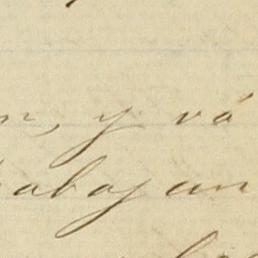 n, y vá
rabajan